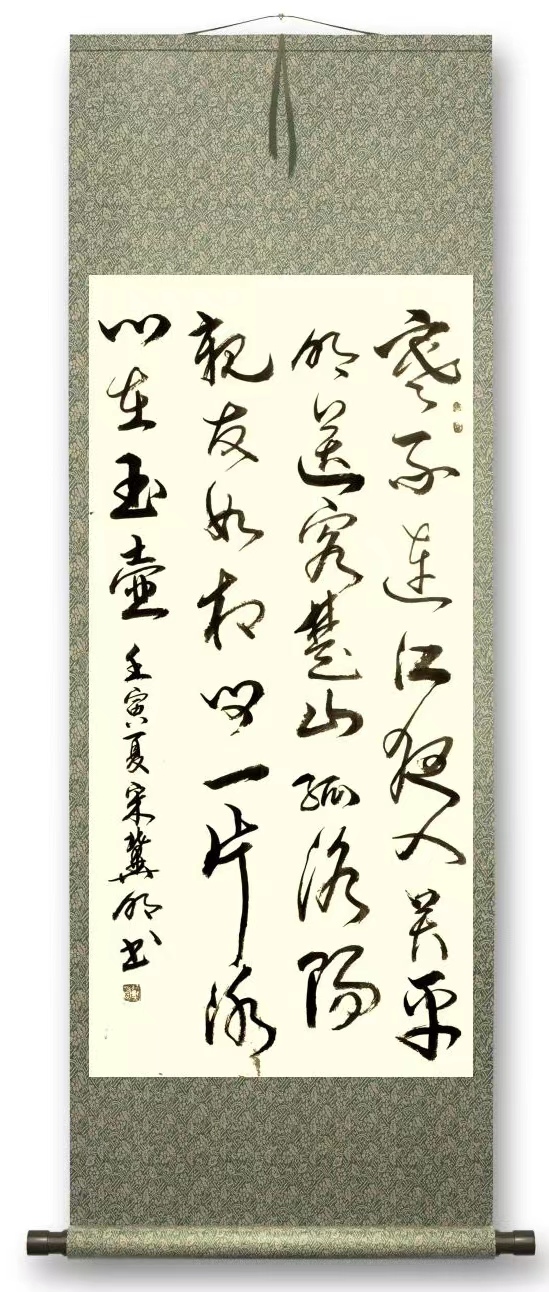 寒雨連江夜入吳平
明送客楚山孤洛陽
親友如相問一片冰
心在玉壺 壬寅夏宋冀明書